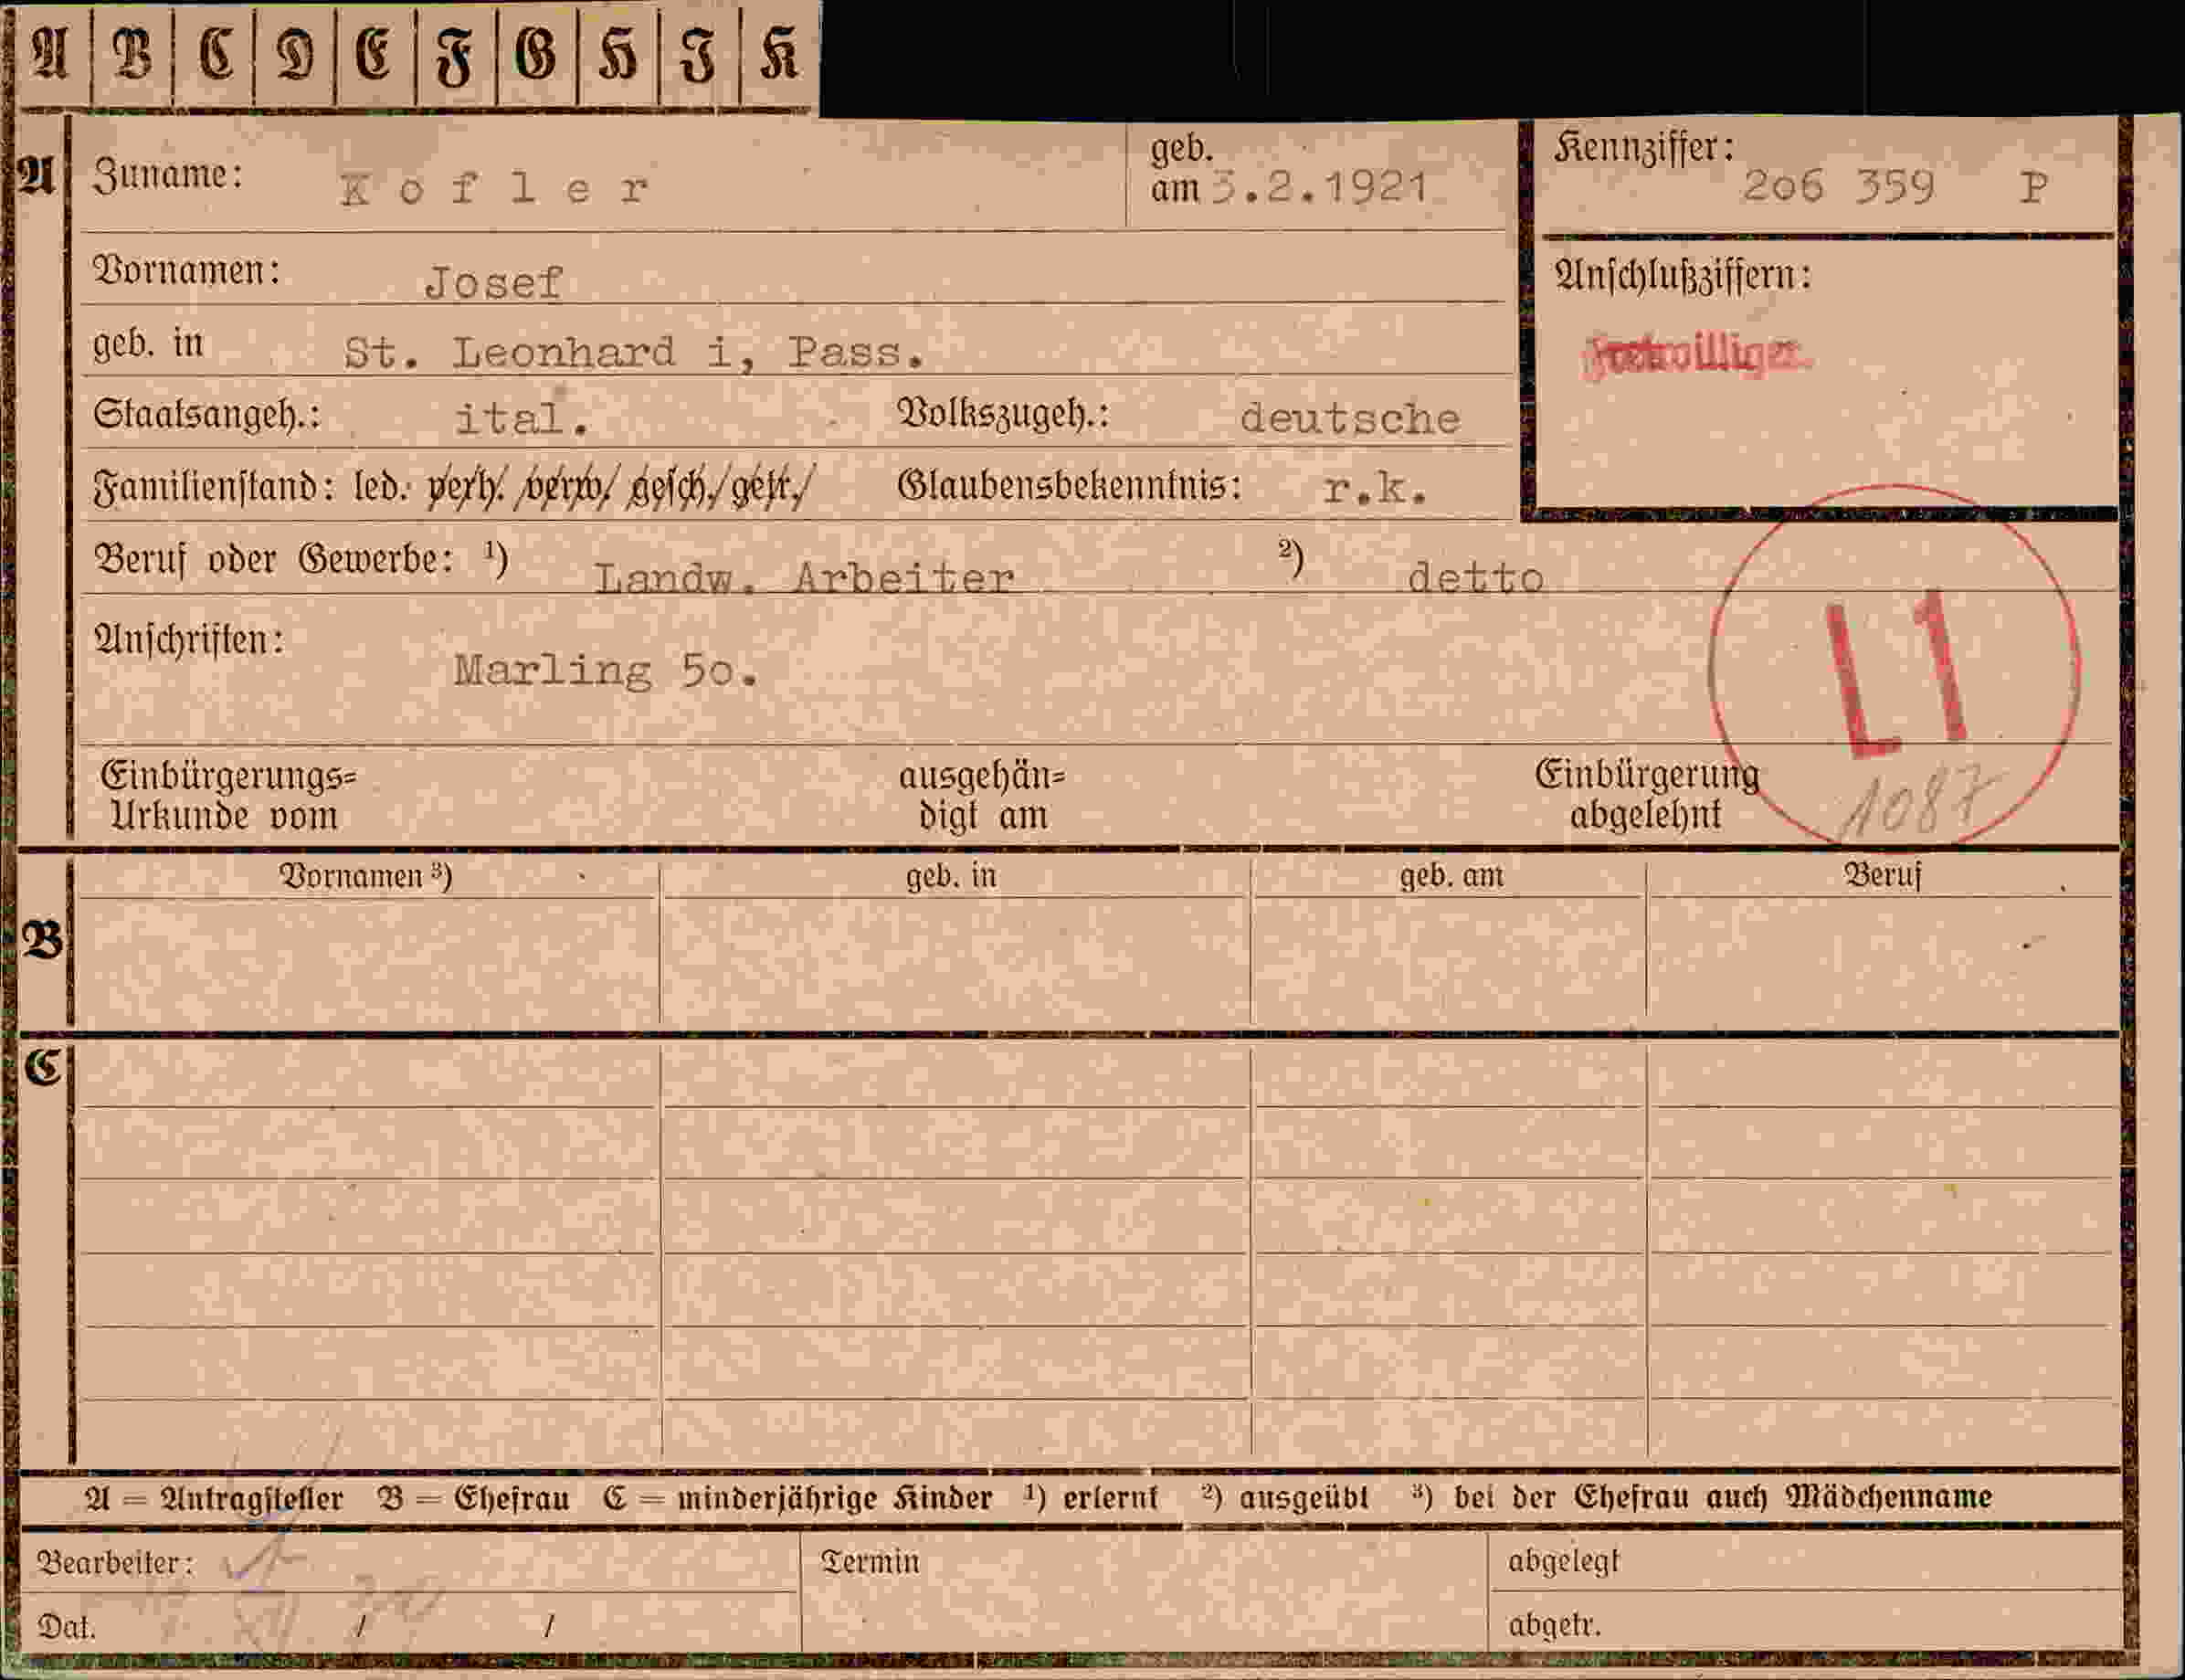 A B C D E F G H I K
A Zuname: Kofler geb. am 3.2.1921 Kennziffer: 2o6 359 P
Vornamen: Josef Anschlußziffern:
geb. in St. Leonhard i, Pass. Freiwilliger
Staatsangeh.: ital. Volkszugeh.: deutsche
Familienstand: led. verh. verw. gesch. getr. Glaubensbekenntnis: r.k.
Beruf oder Gewerbe: ¹) Landw. Arbeiter ²) detto
Anschriften: Marling 5o.
L1
Einbürgerungs= ausgehän= Einbürgerung
Urkunde vom digt am abgelehnt 1087
Vornamen ³) geb. in geb. am Beruf
B
C
A = Antragsteller B = Ehefrau C = minderjährige Kinder ¹) erlernt ²) ausgeübt ³) bei der Ehefrau auch Mädchenname
Bearbeiter: Termin abgelegt
Dat. / / abgetr.